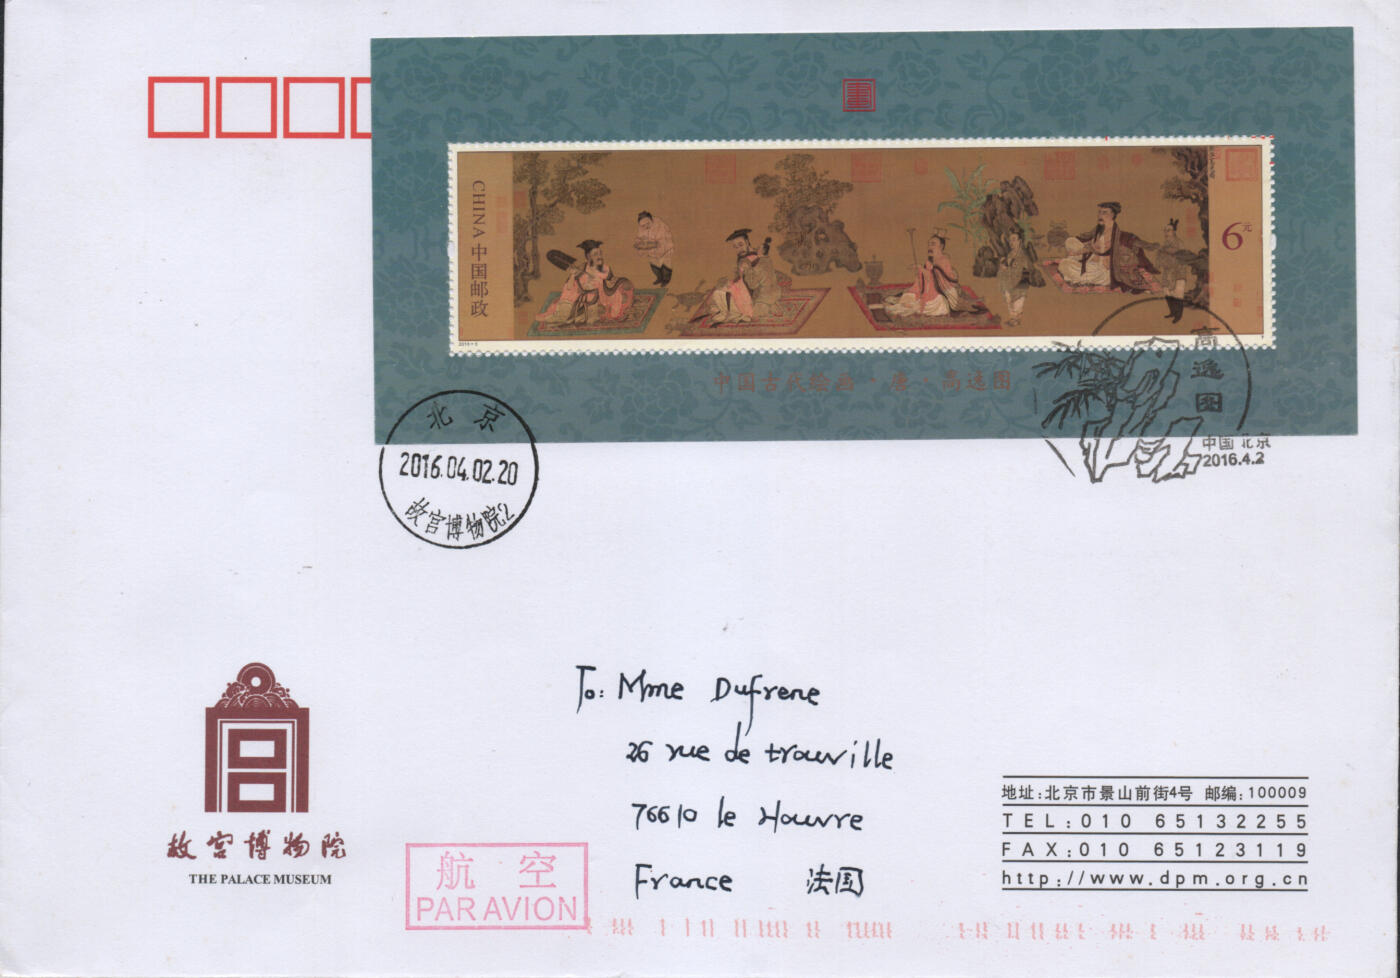 畫
CHINA 中国邮政
6元
2016-5
中国古代绘画·唐·高逸图
高逸图
中国 北京
2016.4.2
北京
2016.04.02.20
故宫博物院2
To: Mme Dufrene
26 rue de trouville
76610 le Havre
France 法国
故宫博物院
THE PALACE MUSEUM
航空
PAR AVION
地址:北京市景山前街4号 邮编:100009
TEL:010 65132255
FAX:010 65123119
http://www.dpm.org.cn